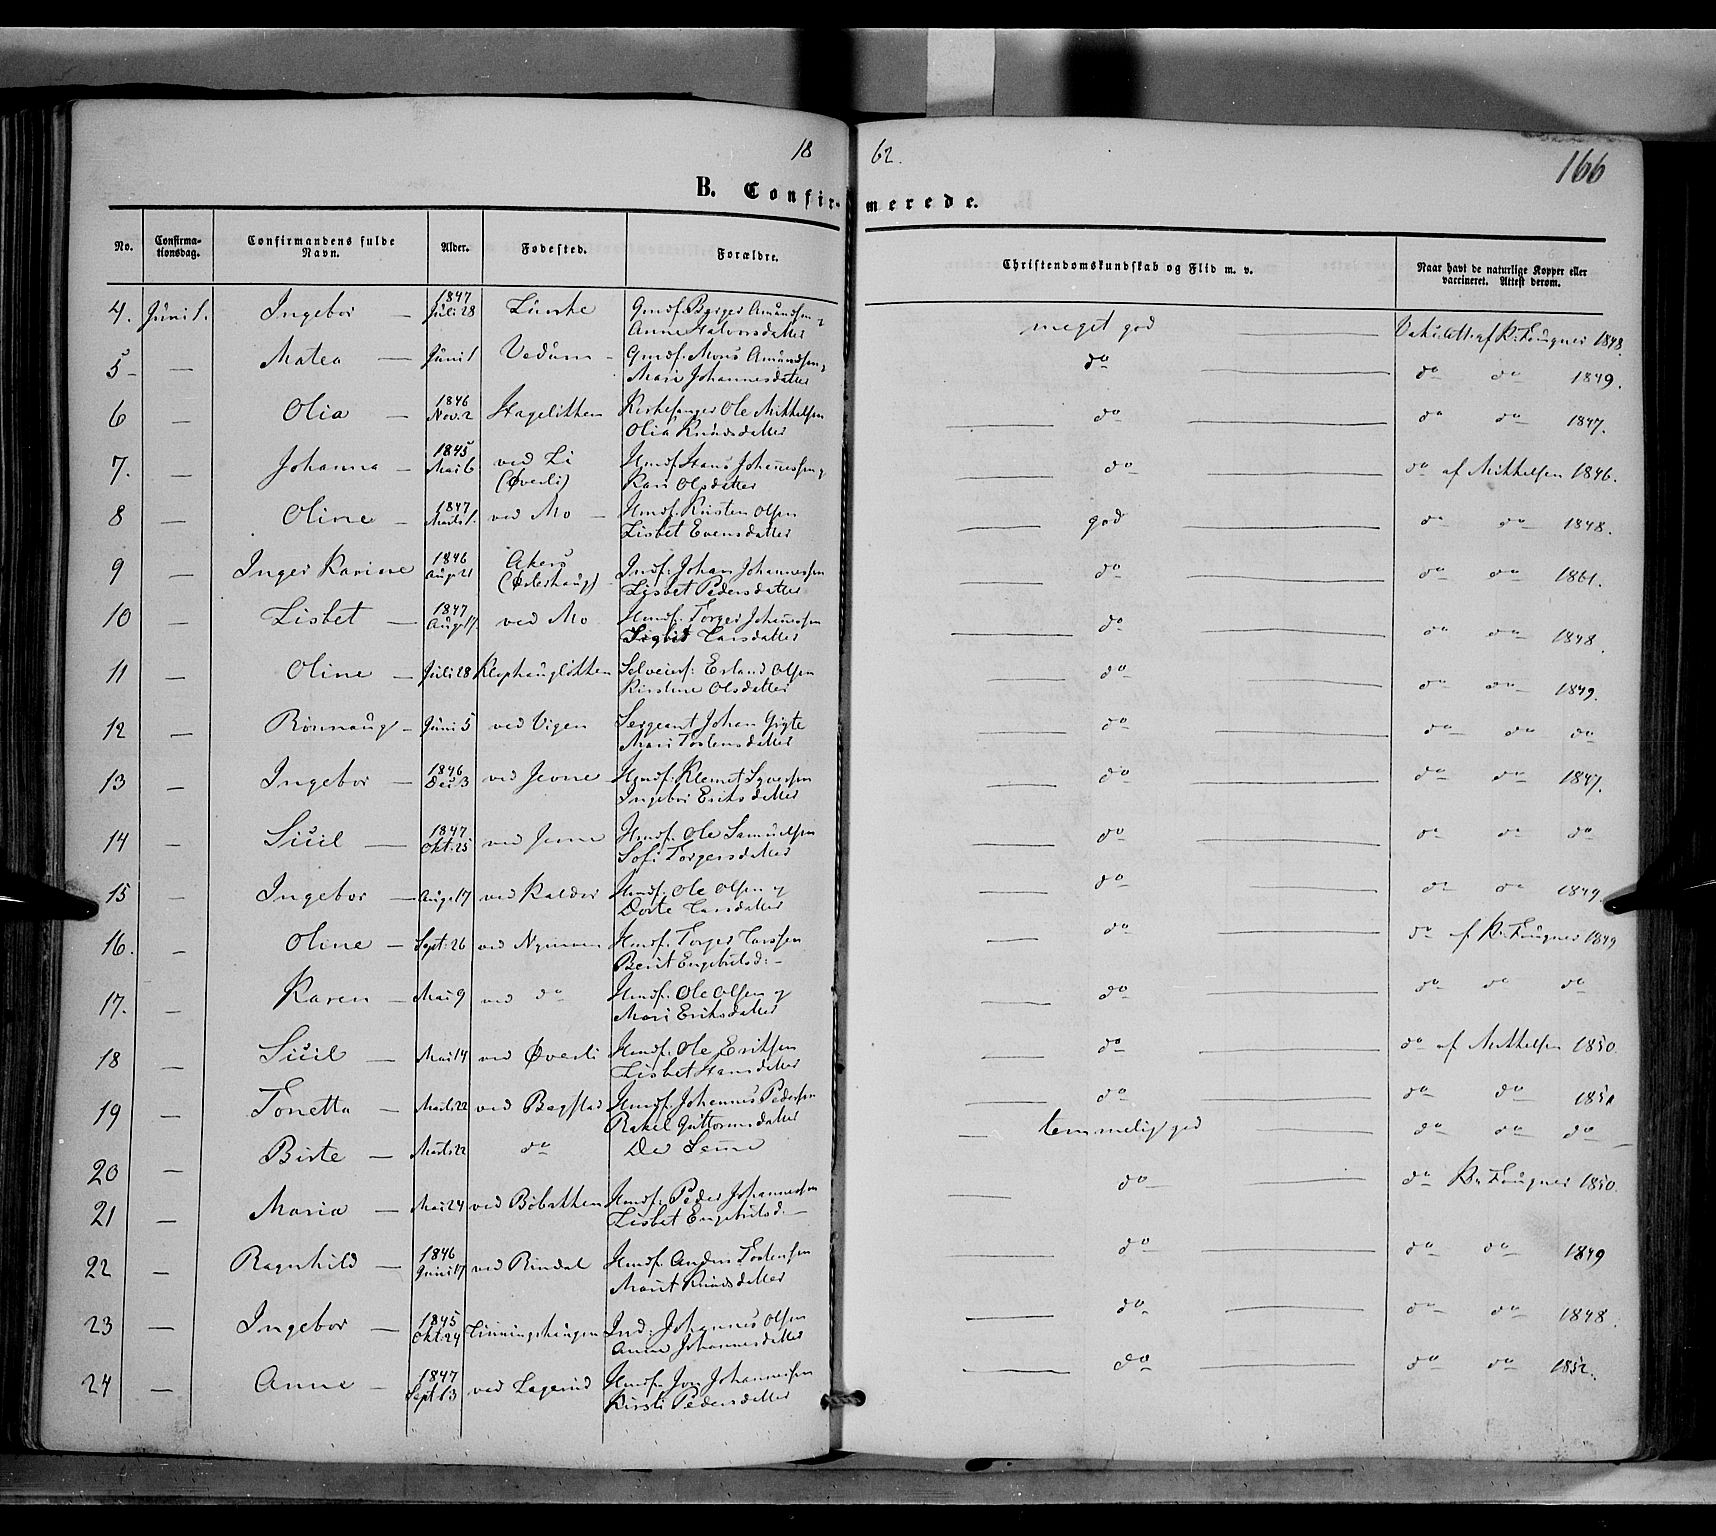 18 62.
166
B. Confir- merede.
No. Confirma-tionsdag. Confirmandens fulde Navn. Alder. Fødested. Forældre. Christendomskundskab og Flid m. v. Naar havt de naturlige Kopper eller vaccineret. Attest derom.
4. Juni 1. Ingebor — 1847 Juli 28 Lunke Gmdf. Birger Amundsen og Anne Halvorsdatter meget god Vaks. Att. af K. Fougner 1848.
5 — — Matea — Juni 1 Vedum — Gmdf. Mons Amundsen og Mari Johannesdatter do do do 1849.
6 — Olia — 1846 Nov. 2 Kirkesanger Ole Mikkelsen Olia Knudsdatter do do do 1847.
7. — Johanna — 1845 Mai 6 ved Li (Øverli) Hmdf. Hans Johannessen og Kari Olsdatter do do af Mikkelsen 1846.
8 — Oline — 1847 Marts 1. ved Mo — Hmdf. Kristen Olsen Lisbet Evensdatter god do do 1848.
9 — Inger Karine 1846 Aug. 21 Akers (Østerhaug) Indf. Johan Johannessen Lisbet Pedersdatter do do do 1861.
10 — Lisbet — 1847 Aug. 17 ved Mo Hmdf. Torger Johannessen Sigbit Larsdatter do do do 1848.
11 — Oline — Juli 28 Klophaugløkken Selveierf. Erland Olsen Kirstine Olsdatter do do do 1849.
12 — Rønnaug — Juni 5 ved Vigen Sergeant Johan Gigte Mari Tostensdatter do do do do
13 — Ingebor — 1846 Dec. 3 ved Jevne Hmdf. Klemet Syversen Ingebor Eriksdatter do do do 1847.
14 — Siül — 1847 Okt. 25 ved Jevne Hmdf. Ole Samuelsen Sofi Torgersdatter do do do do
15 — Ingebor — Aug. 17 ved Kaldor Hmdf. Ole Olsen og Dorte Larsdatter do do do 1849.
16. — Oline — Sept. 26 ved Nymoen Hmdf. Torger Larssen Berit Engebretsd: — do do af K. Fougner 1849
17. — Karen — Mai 9 ved do Hmdf. Ole Olsen og Mari Eriksdatter do do do do
18 — Siül — Mai 14 ved Øverli Hmdf. Ole Eriksen Lisbet Hansdatter do do af Mikkelsen 1850.
19 — Tonetta — Marts 22 ved Bagstad Hmdf. Johannes Pedersen Rakel Guttormsdatter do do do 1851
20 — Birte — Marts 22 do De Samme temmelig god do do do
21 — Maria — Mai 24 ved Bøbakken Hmdf. Peder Johannessen Lisbet Engebretsd: — do do K. Fougner 1850.
22 — Ragnhild — 1846 Juni 17 ved Rindal Hmdf. Anders Tostensen Marit Knudsdatter do do do 1849
23 — Ingebor — 1845 Okt. 24 Linningshaugen Ind. Johannes Olsen Anne Johannesdatter do do do 1848.
24 — Anne — 1847 Sept. 13 ved Lagerud Hmdf. Jon Johannessen Kirsti Pedersdatter do do do 1852.